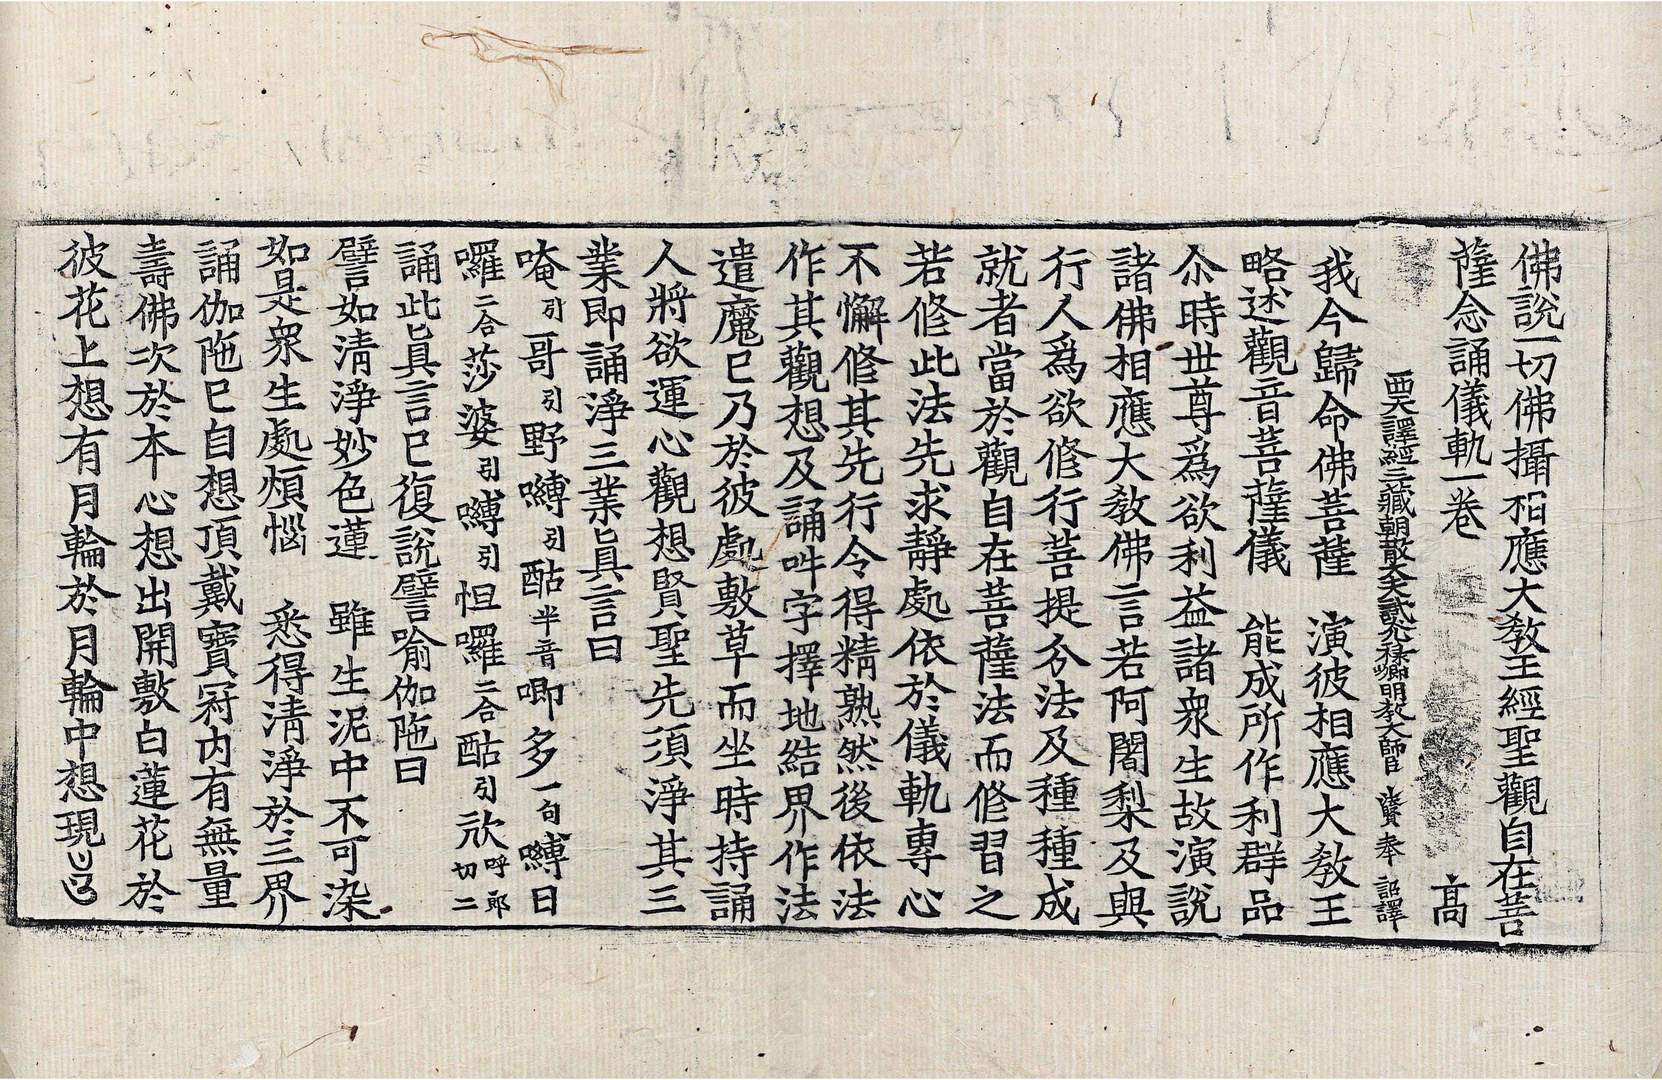 佛說一切佛攝相應大教王經聖觀自在菩
薩念誦儀軌一卷 高
西天譯經三藏朝散大夫試光祿卿明教大師臣 法賢 奉 詔譯
我今歸命佛菩薩 演彼相應大教王
略述觀音菩薩儀 能成所作利群品
尒時世尊爲欲利益諸衆生故演說
諸佛相應大教佛言若阿闍梨及與
行人爲欲修行菩提分法及種種成
就者當於觀自在菩薩法而修習之
若修此法先求靜處依於儀軌專心
不懈修其先行令得精熟然後依法
作其觀想及誦吽字擇地結界作法
遣魔巳乃於彼處敷草而坐時持誦
人將欲運心觀想賢聖先須淨其三
業即誦淨三業眞言曰
唵引哥引野嚩引酤半音唧多一句嚩日
囉二合莎婆引嚩引怛囉二合酤引㰠呼郎切二
誦此眞言巳復說譬喻伽陁曰
譬如清淨妙色蓮 雖生泥中不可染
如是衆生處煩惱 悉得清淨於三界
誦伽陁巳自想頂戴寶冠內有無量
壽佛次於本心想出開敷白蓮花於
彼花上想有月輪於月輪中想現